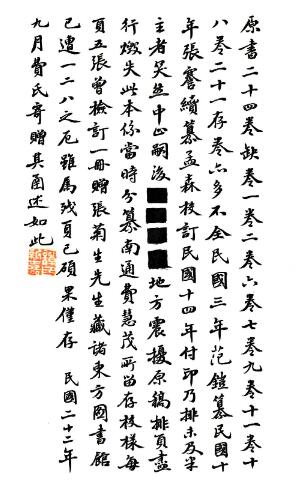 原書二十四卷缺卷一卷二卷六卷七卷九卷十一卷十
八卷二十一存卷六多不全民國三年范鎧纂民國十
年張謇續纂孟森校訂民國十四年付印乃排未及半
主者哭並中止嗣後■■■■地方震擾原稿排頁盡
行燬失此本係當時分纂南通費慧茂所留存校樣每
頁五張曾檢訂一冊贈張菊生先生藏諸東方圖書館
已遭一二八之厄雖屬殘頁已碩果僅存 民國二十二年
九月費氏寄贈其函述如此